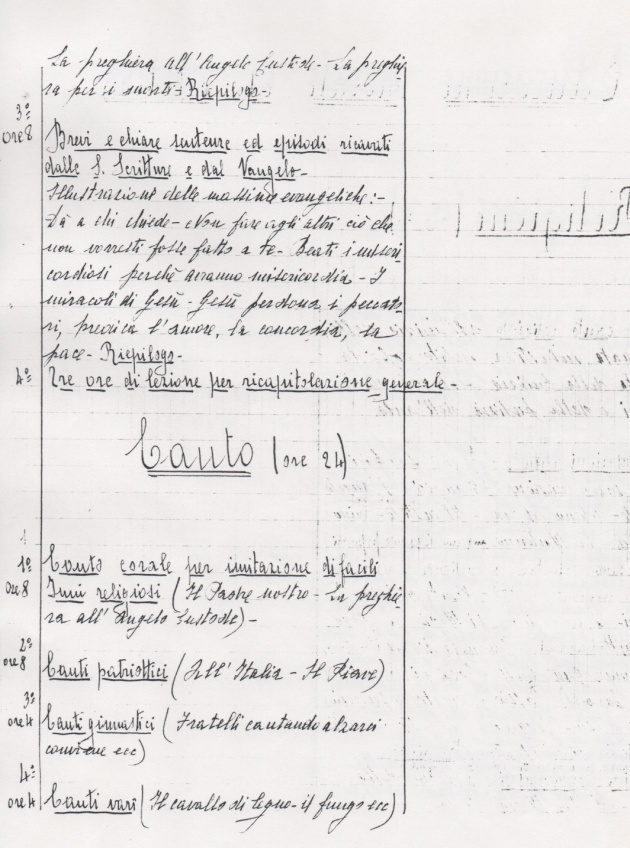 La preghiera all'Angelo Custode - La preghie
ra per i morti - Riepilogo -
3º
ore 8
Brevi e chiare sentenze ed episodi ricavati
dalle S. Scritture e dal Vangelo -
Illustrazione delle massime evangeliche: -
Dà a chi chiede - Non fare agli altri ciò che
non vorresti fosse fatto a te - Beati i miseri
cordiosi perché avranno misericordia - I
miracoli di Gesù - Gesù perdona i peccato
ri, predica l'amore, la concordia, la
pace - Riepilogo -
4º Tre ore di lezione per ricapitolazione generale -
Canto (ore 24)
1º Canto corale per imitazione di facili
ore 8 Inni religiosi (Il Padre nostro - La preghie
ra all'Angelo Custode) -
2º
ore 8 Canti patriottici (All'Italia - Il Piave)
3º
ore 4 Canti ginnastici (Fratelli cantando alzarci
conviene ecc)
4º
ore 4 Canti vari (Il cavallo di legno - il fungo ecc)